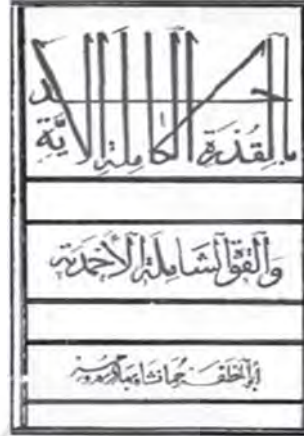 بالقدرة الكاملة الأحدية
والقوة الشاملة الأحمدية
أبو المظفر جهانشاه بهادر